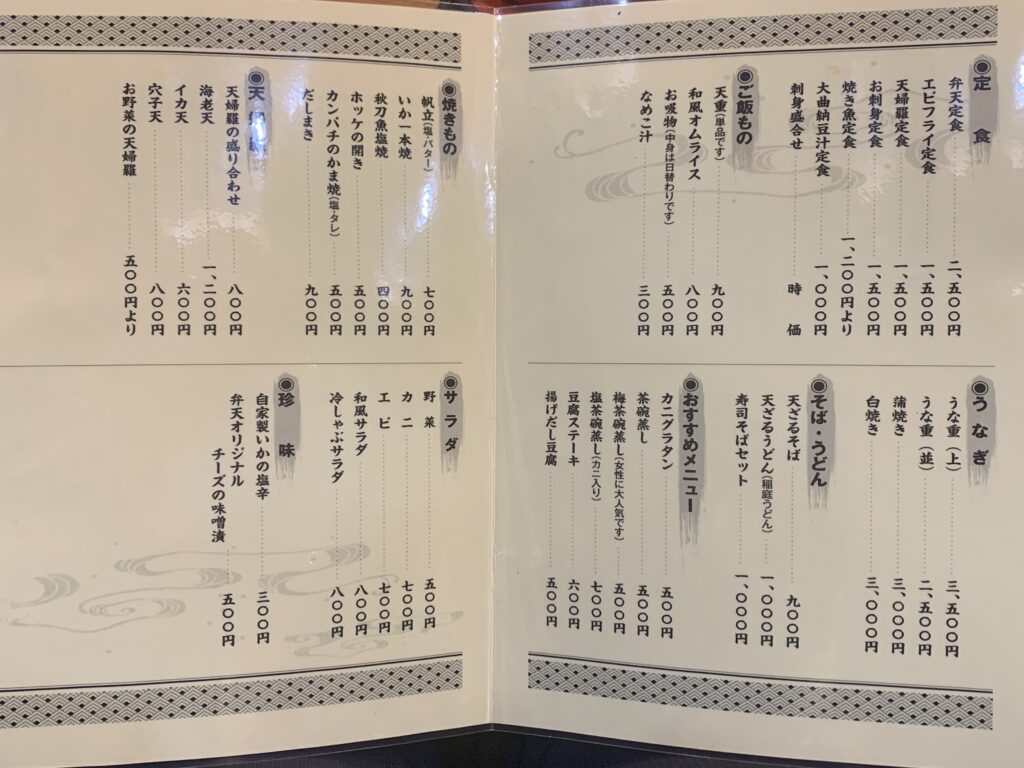 ◉定食
弁天定食 二、五〇〇円
エビフライ定食 一、五〇〇円
天婦羅定食 一、五〇〇円
お刺身定食 一、五〇〇円
焼き魚定食 一、二〇〇円より
大曲納豆汁定食 一、〇〇〇円
刺身盛合せ 時価
◉ご飯もの
天重(単品です) 九〇〇円
和風オムライス 八〇〇円
お吸物(中身は日替わりです) 五〇〇円
なめこ汁 三〇〇円
◉うなぎ
うな重(上) 三、五〇〇円
うな重(並) 二、五〇〇円
蒲焼き 三、〇〇〇円
白焼き 三、〇〇〇円
◉そば・うどん
天ざるそば 九〇〇円
天ざるうどん(稲庭うどん) 一、〇〇〇円
寿司そばセット 一、〇〇〇円
◉おすすめメニュー
カニグラタン 五〇〇円
茶碗蒸し 五〇〇円
梅茶碗蒸し(女性に大人気です) 五〇〇円
塩茶碗蒸し(カニ入り) 七〇〇円
豆腐ステーキ 六〇〇円
揚げだし豆腐 五〇〇円
◉焼きもの
帆立(塩・バター) 七〇〇円
いか一本焼 九〇〇円
秋刀魚塩焼 四〇〇円
ホッケの開き 五〇〇円
カンパチのかま焼(塩・タレ) 五〇〇円
だしまき 九〇〇円
◉天婦羅
天婦羅の盛り合わせ 八〇〇円
海老天 一、二〇〇円
イカ天 六〇〇円
穴子天 八〇〇円
お野菜の天婦羅 五〇〇円より
◉サラダ
野菜 五〇〇円
カニ 七〇〇円
エビ 七〇〇円
和風サラダ 八〇〇円
冷しゃぶサラダ 八〇〇円
◉珍味
自家製いかの塩辛 三〇〇円
弁天オリジナル
チーズの味噌漬 五〇〇円